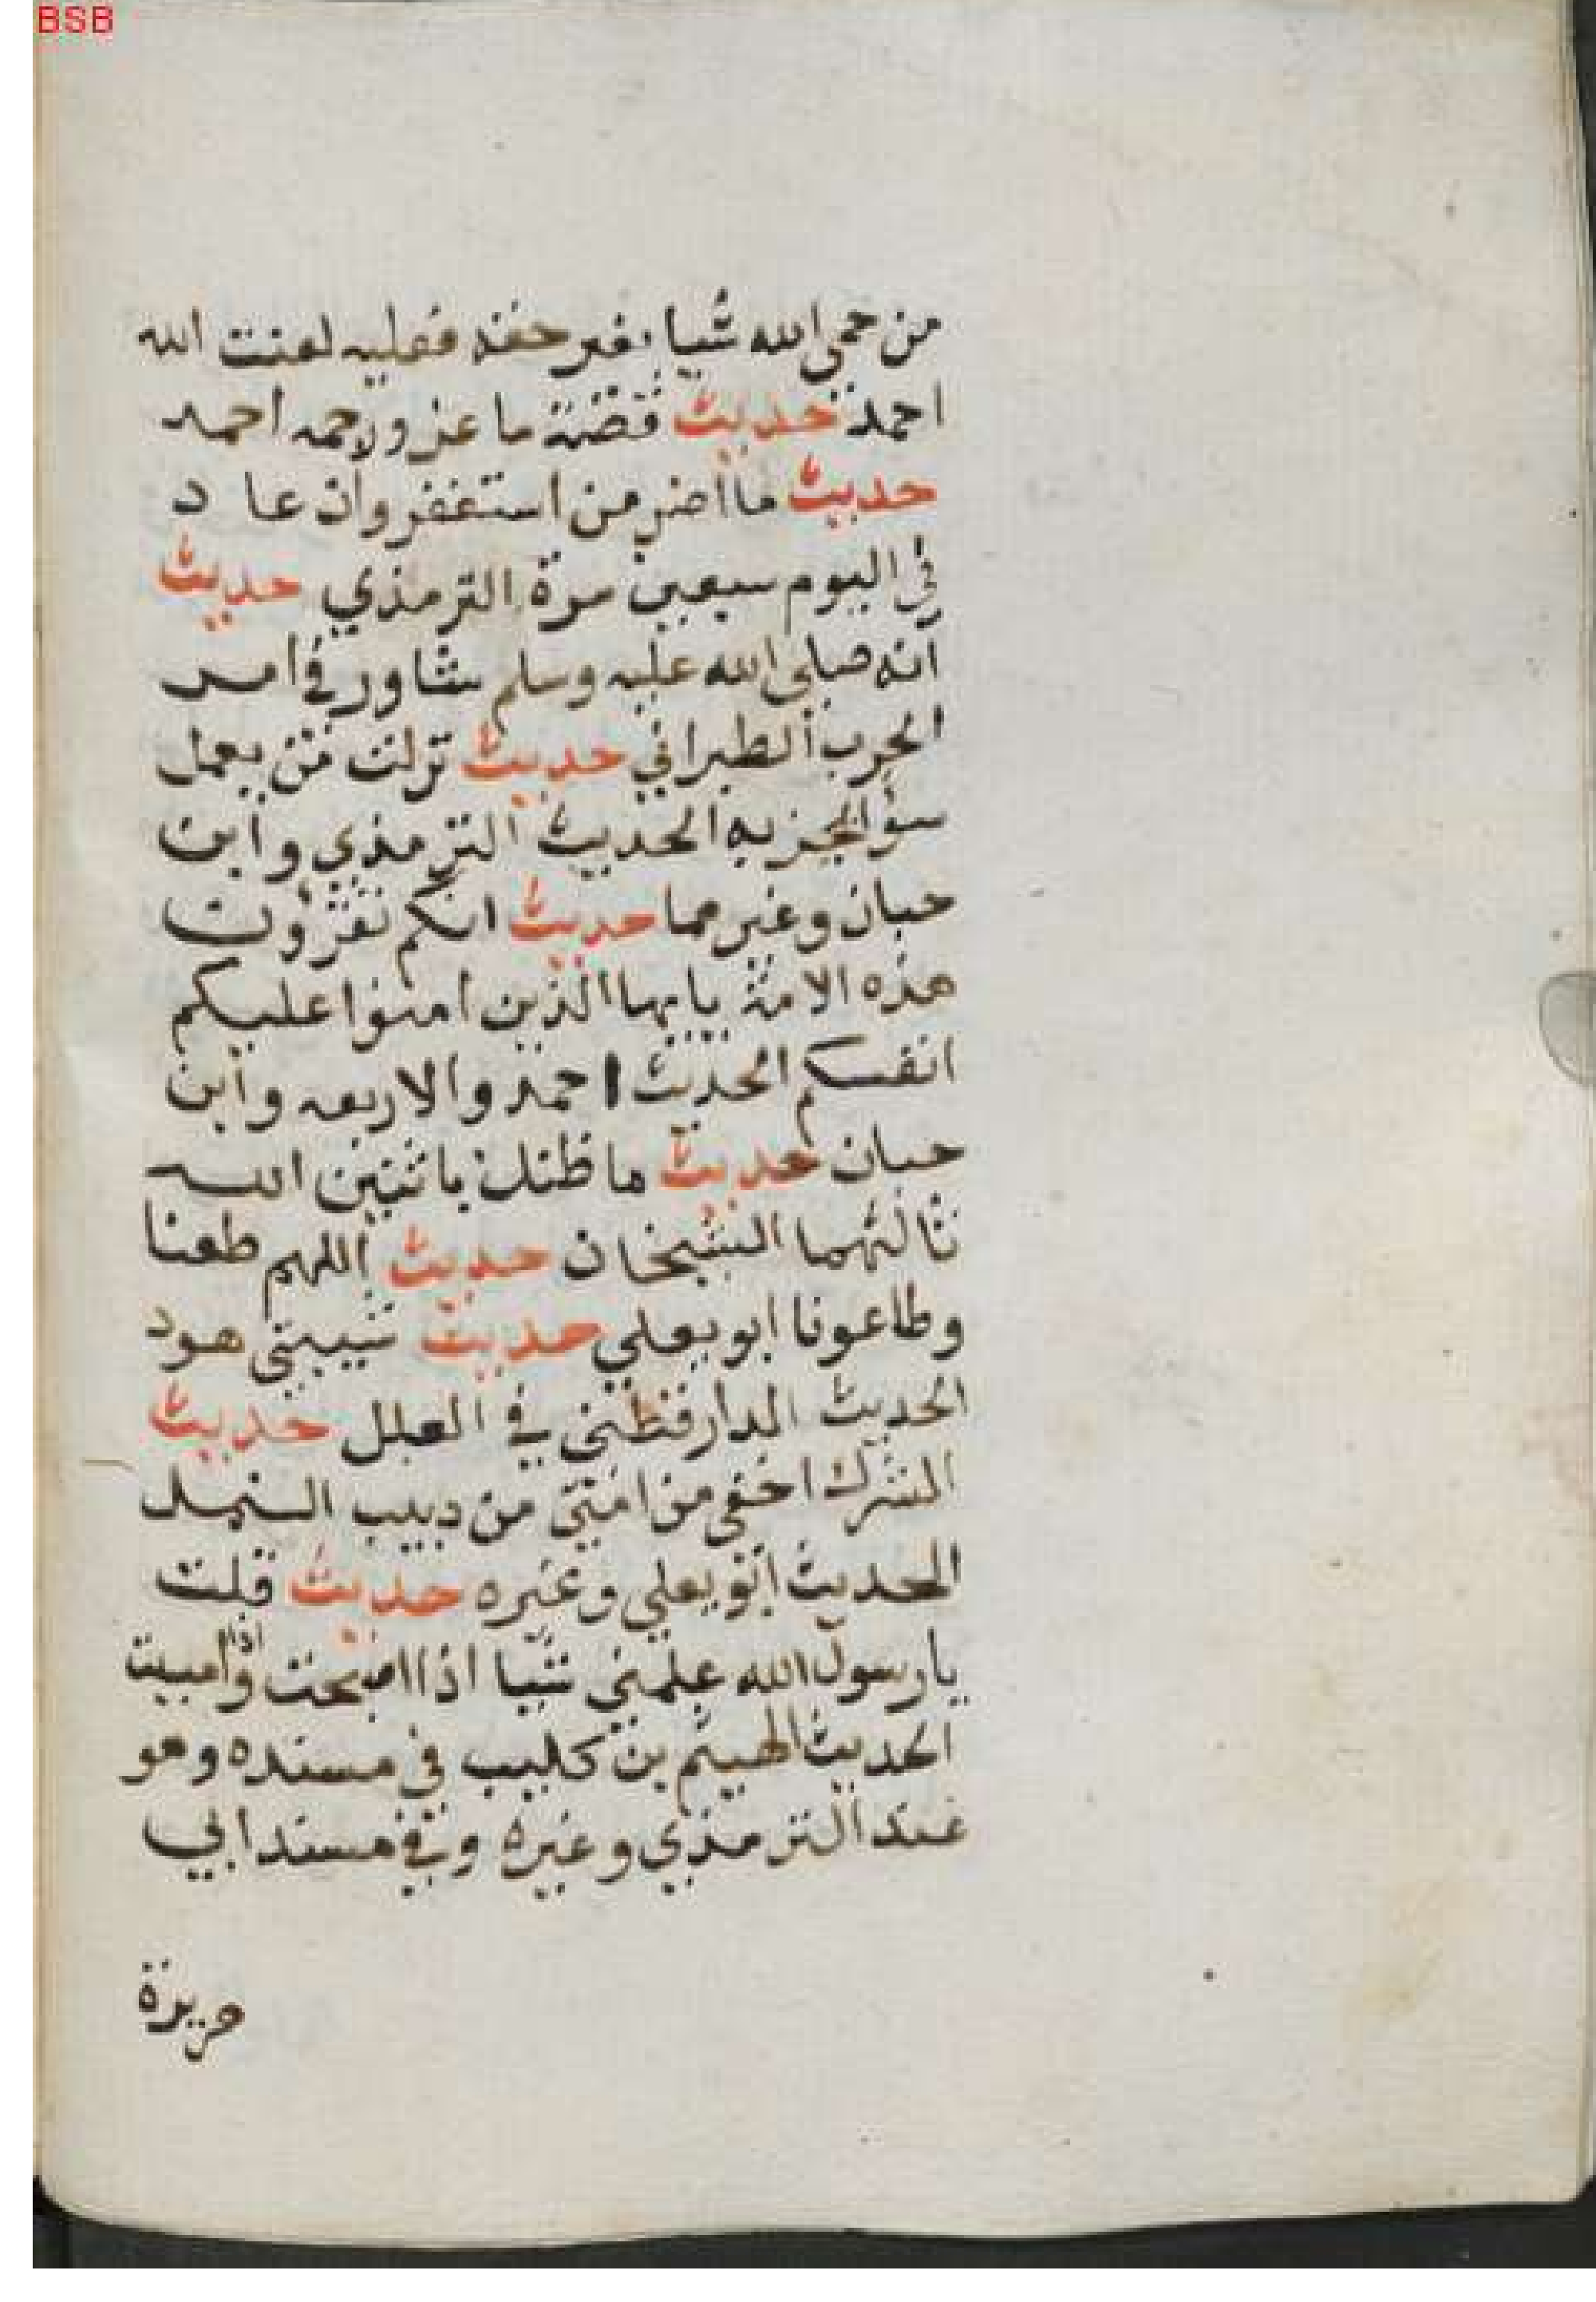 BSB
من حمى الله شيا بغير حقه فعليه لعنت الله
احمد حديث قصة ماعز ورجمه احمد
حديث ما اصر من استغفر وان عاد
في اليوم سبعين مرة الترمذي حديث
انه صلى الله عليه وسلم شاور في امر
الحرب الطبراني حديث نزلت من يعمل
سوا يجز به الحديث الترمذي وابن
حبان وغيرهما حديث انكم تقرؤن
هذه الامة يايها الذين امنوا عليكم
انفسكم الحديث احمد والاربعه وابن
حبان حديث ما ظنك باثنين الله
ثالثهما الشيخان حديث اللهم طعنا
وطاعونا ابو يعلي حديث شيبتني هود
الحديث الدارقطني في العلل حديث
الشرك اخفى من امتي من دبيب النمل
الحديث ابو يعلي وغيره حديث قلت
يا رسول الله علمني شيا اذا اصبحت واذا امسيت
الحديث الهيثم بن كليب في مسنده وهو
عند الترمذي وغيره وفي مسند ابي
هريرة